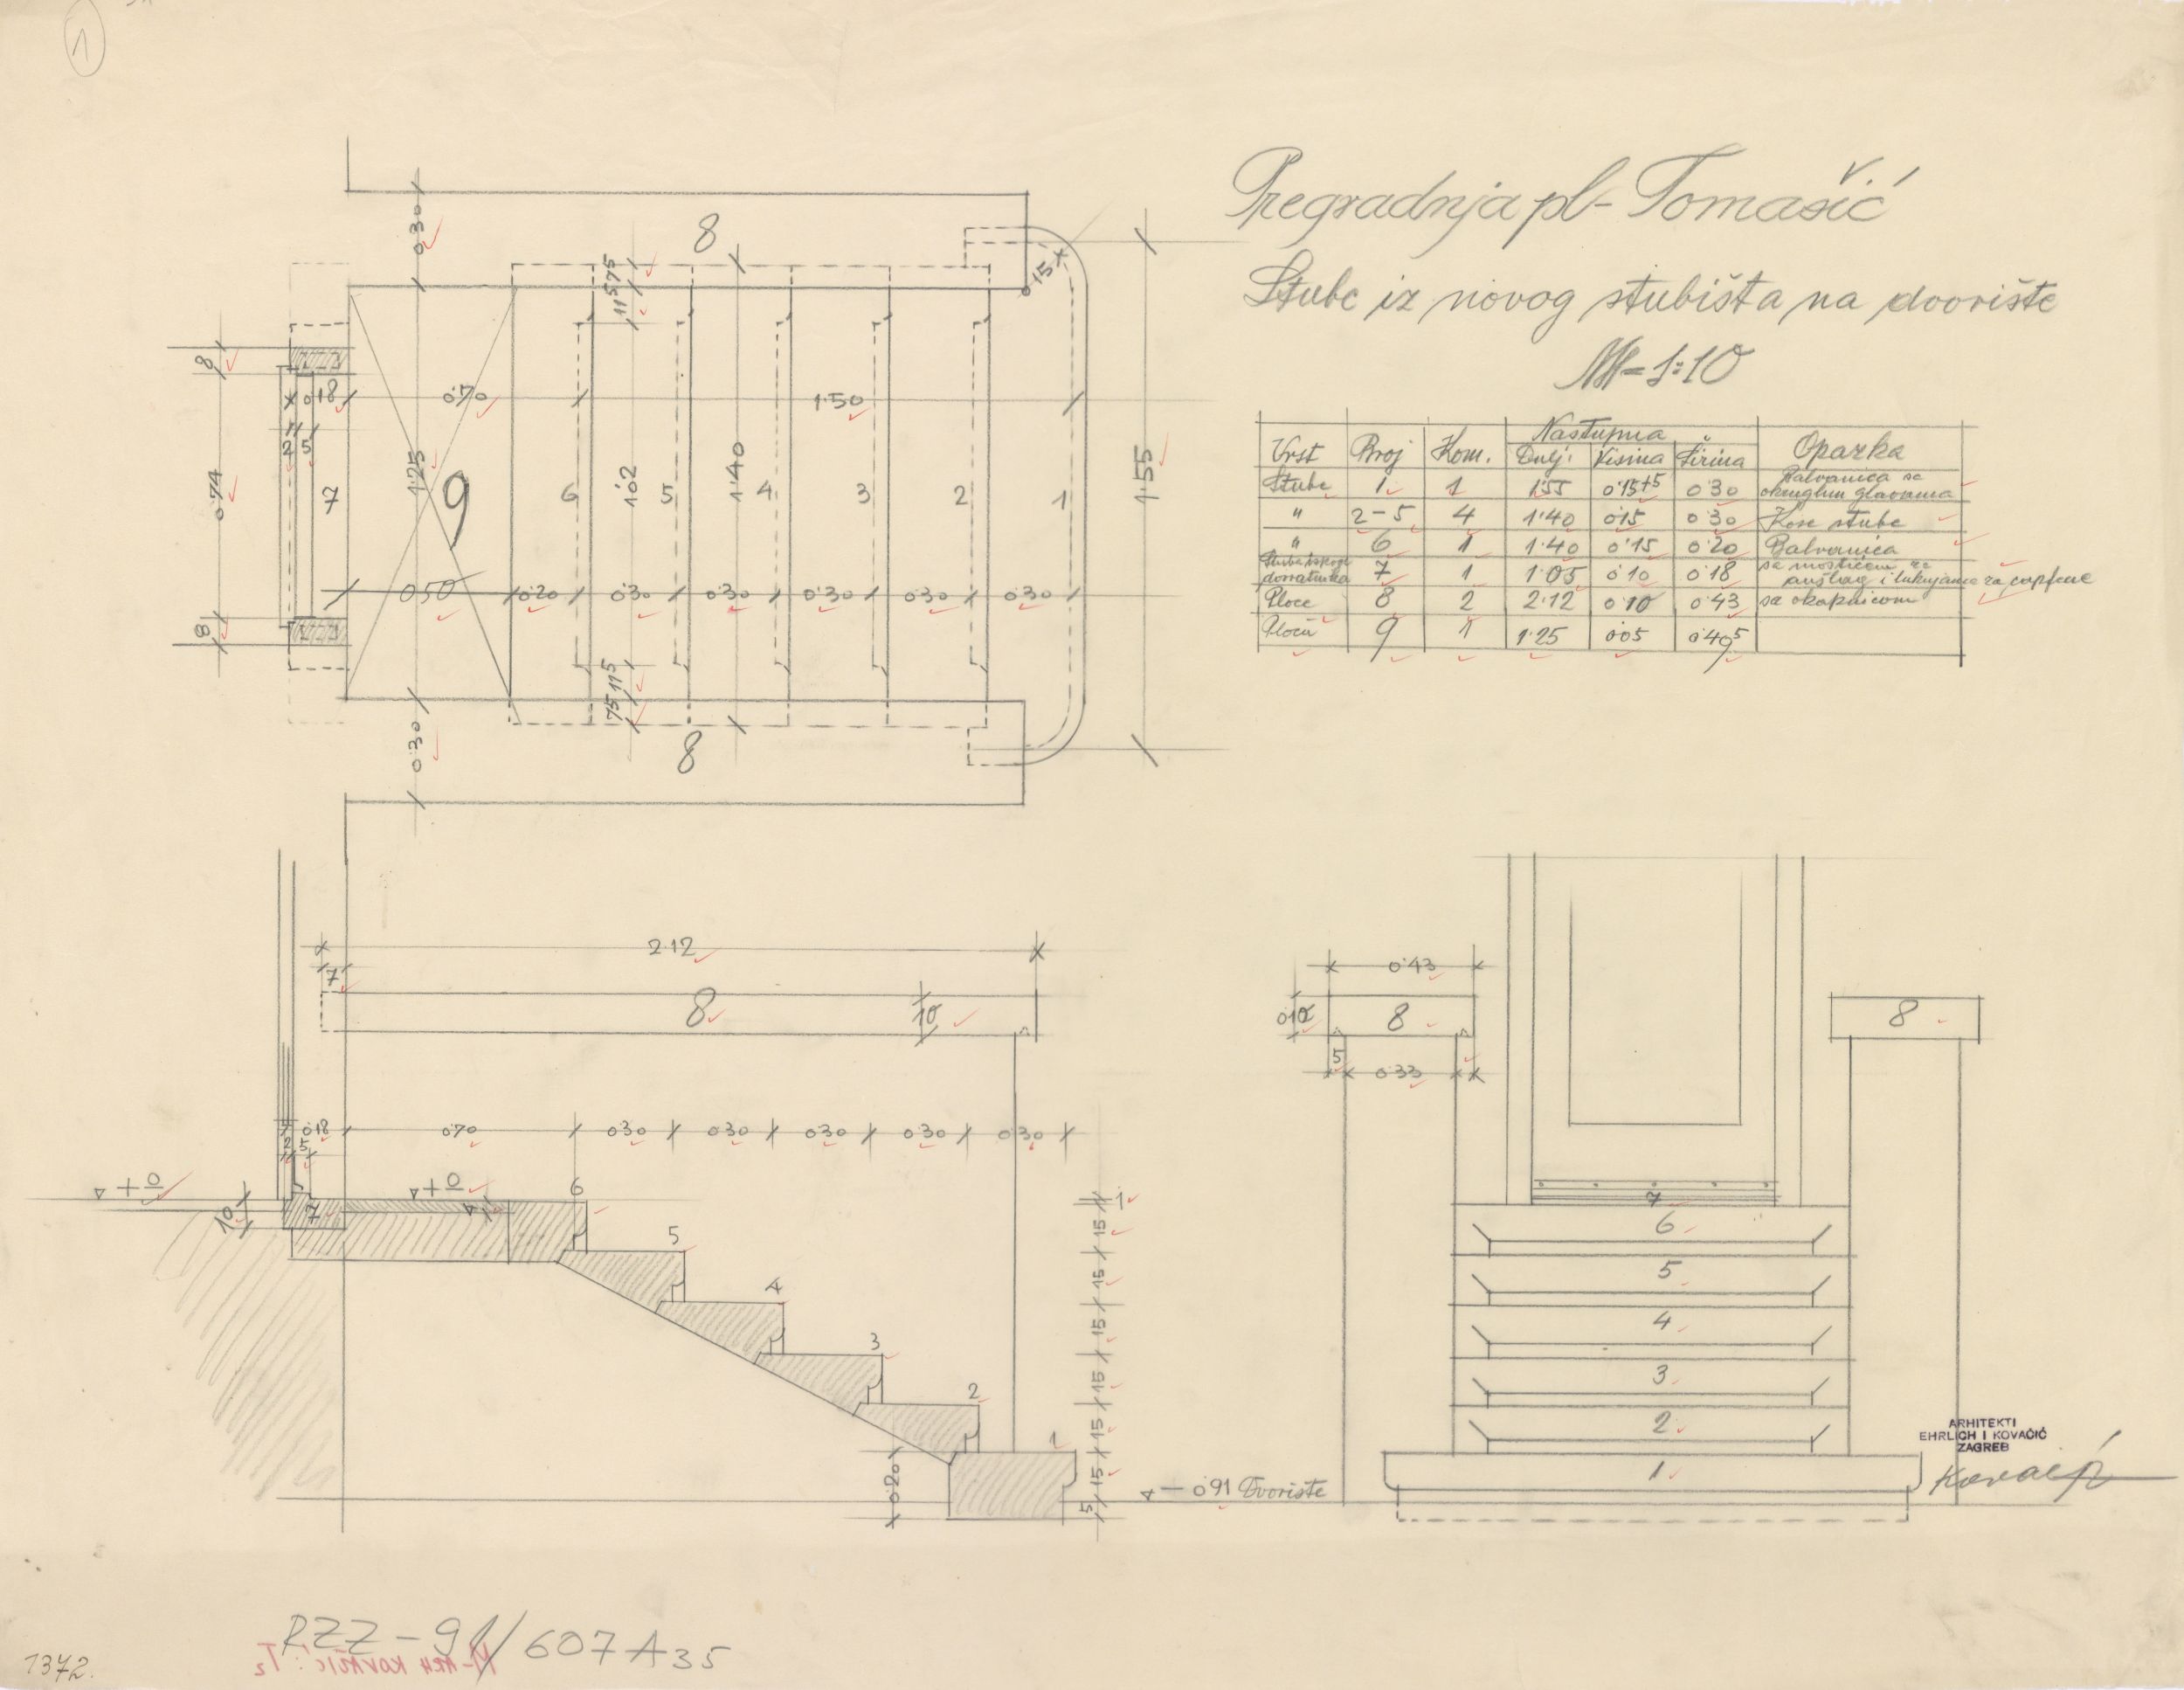 1
Pregradnja pl- Tomašić
Stube iz novog stubišta na dvorište
M=1:10
Vrst Broj Kom. Nastupna Opazka
Dulj. Visina Širina
Stube 1 1 1.55 0.15+5 0.30 Balvanica sa okruglim glavama
" 2-5 4 1.40 0.15 0.30 Kose stube
" 6 1 1.40 0.15 0.20 Balvanica
dovratnika 7 1 1.05 0.10 0.18 za
i za capfene
Ploče 8 2 2.12 0.10 0.43 sa okapnicom
Ploča 9 1 1.25 0.05 0.49⁵
0.30 8
75
11⁵ 15
8
0.18 0.70 1.50
2 5
0.74 7 1.25 9 6 1.02 5 1.40 4 3 2 1 1.55
0.50 0.20 0.30 0.30 0.30 0.30 0.30
8
11⁵
75
0.30 8
2.12
7
8 10
0.18 0.70 0.30 0.30 0.30 0.30 0.30
2 5
+0 +0 6
10 7
5
4
3
2
1
0.20
1
15
15
15
15
15
15
5
-0.91 Dvorište
0.43
0.10 8 8
5 0.33
7
6
5
4
3
2
1
ARHITEKTI
EHRLICH I KOVAČIĆ
ZAGREB
Kovačić
RZZ-91/607A35
1372.